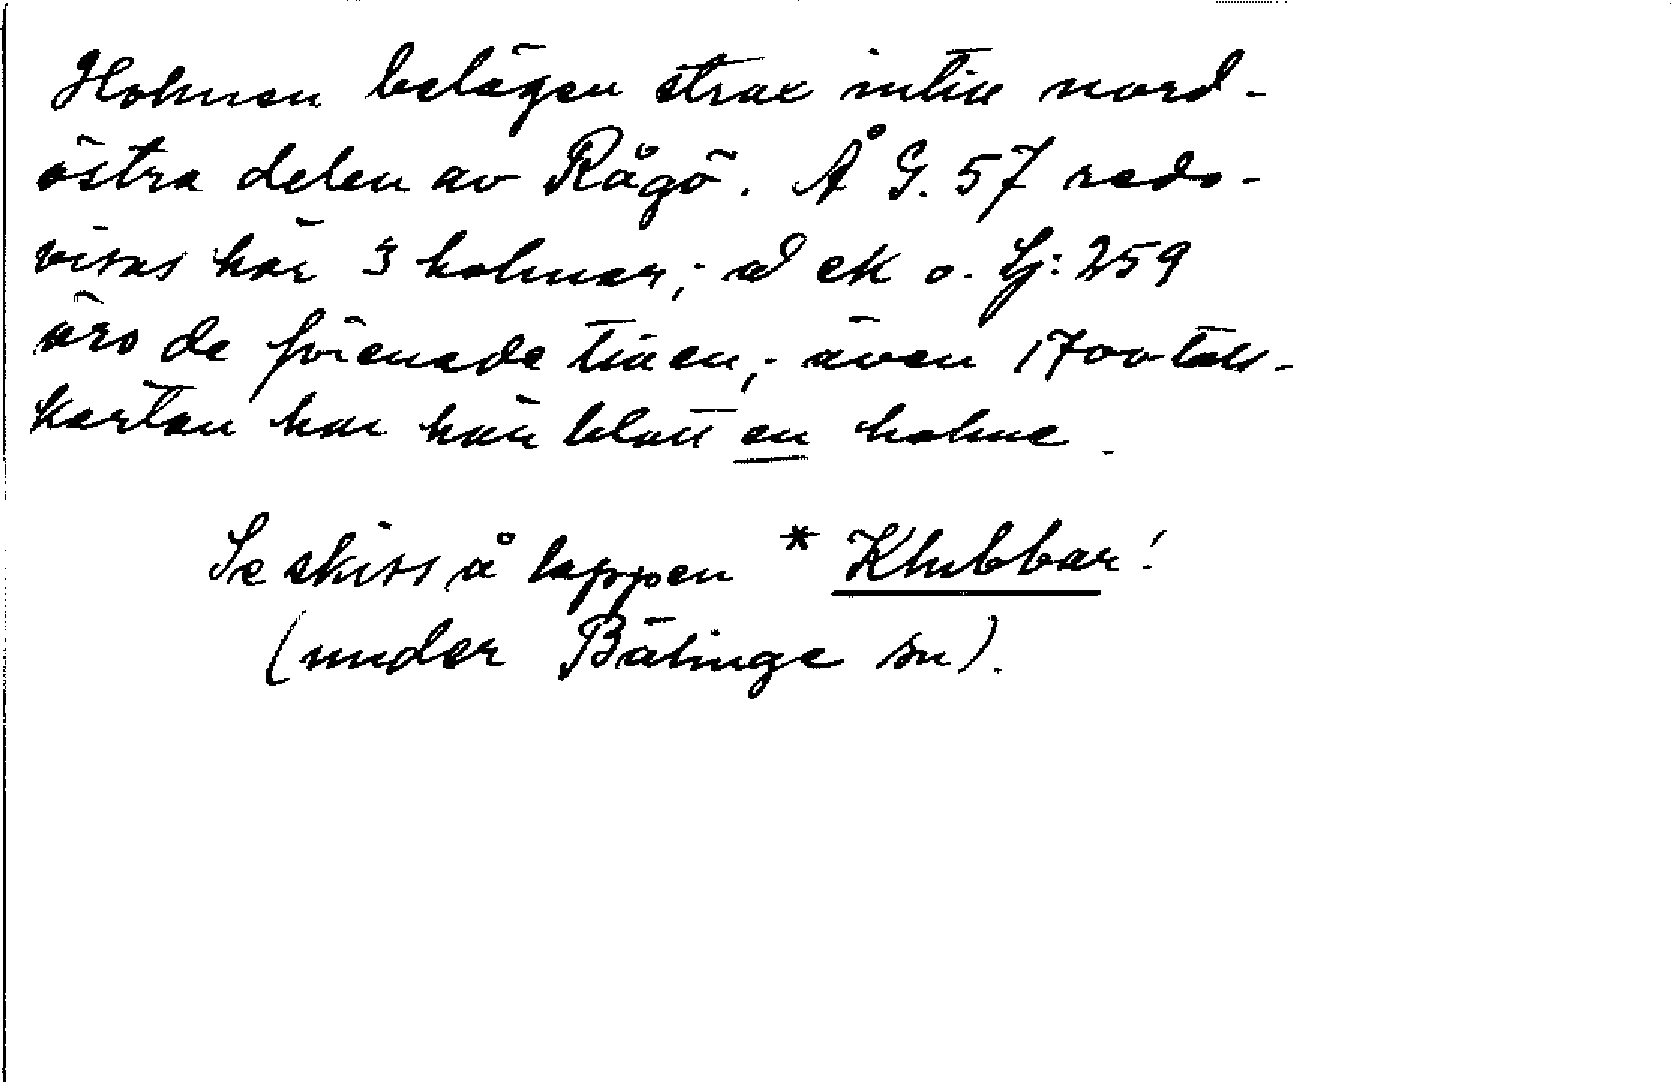 Holmen belägen strax intill nord-
östra delen av Rågö. Å G. 57 redo-
visas här 3 holmar; å ek o. Lj: 259
äro de förenade till en; även 1700-tals-
kartan har här blott en holme.
Se skiss å lappen * Klubbar!
(under Bälinge sn).